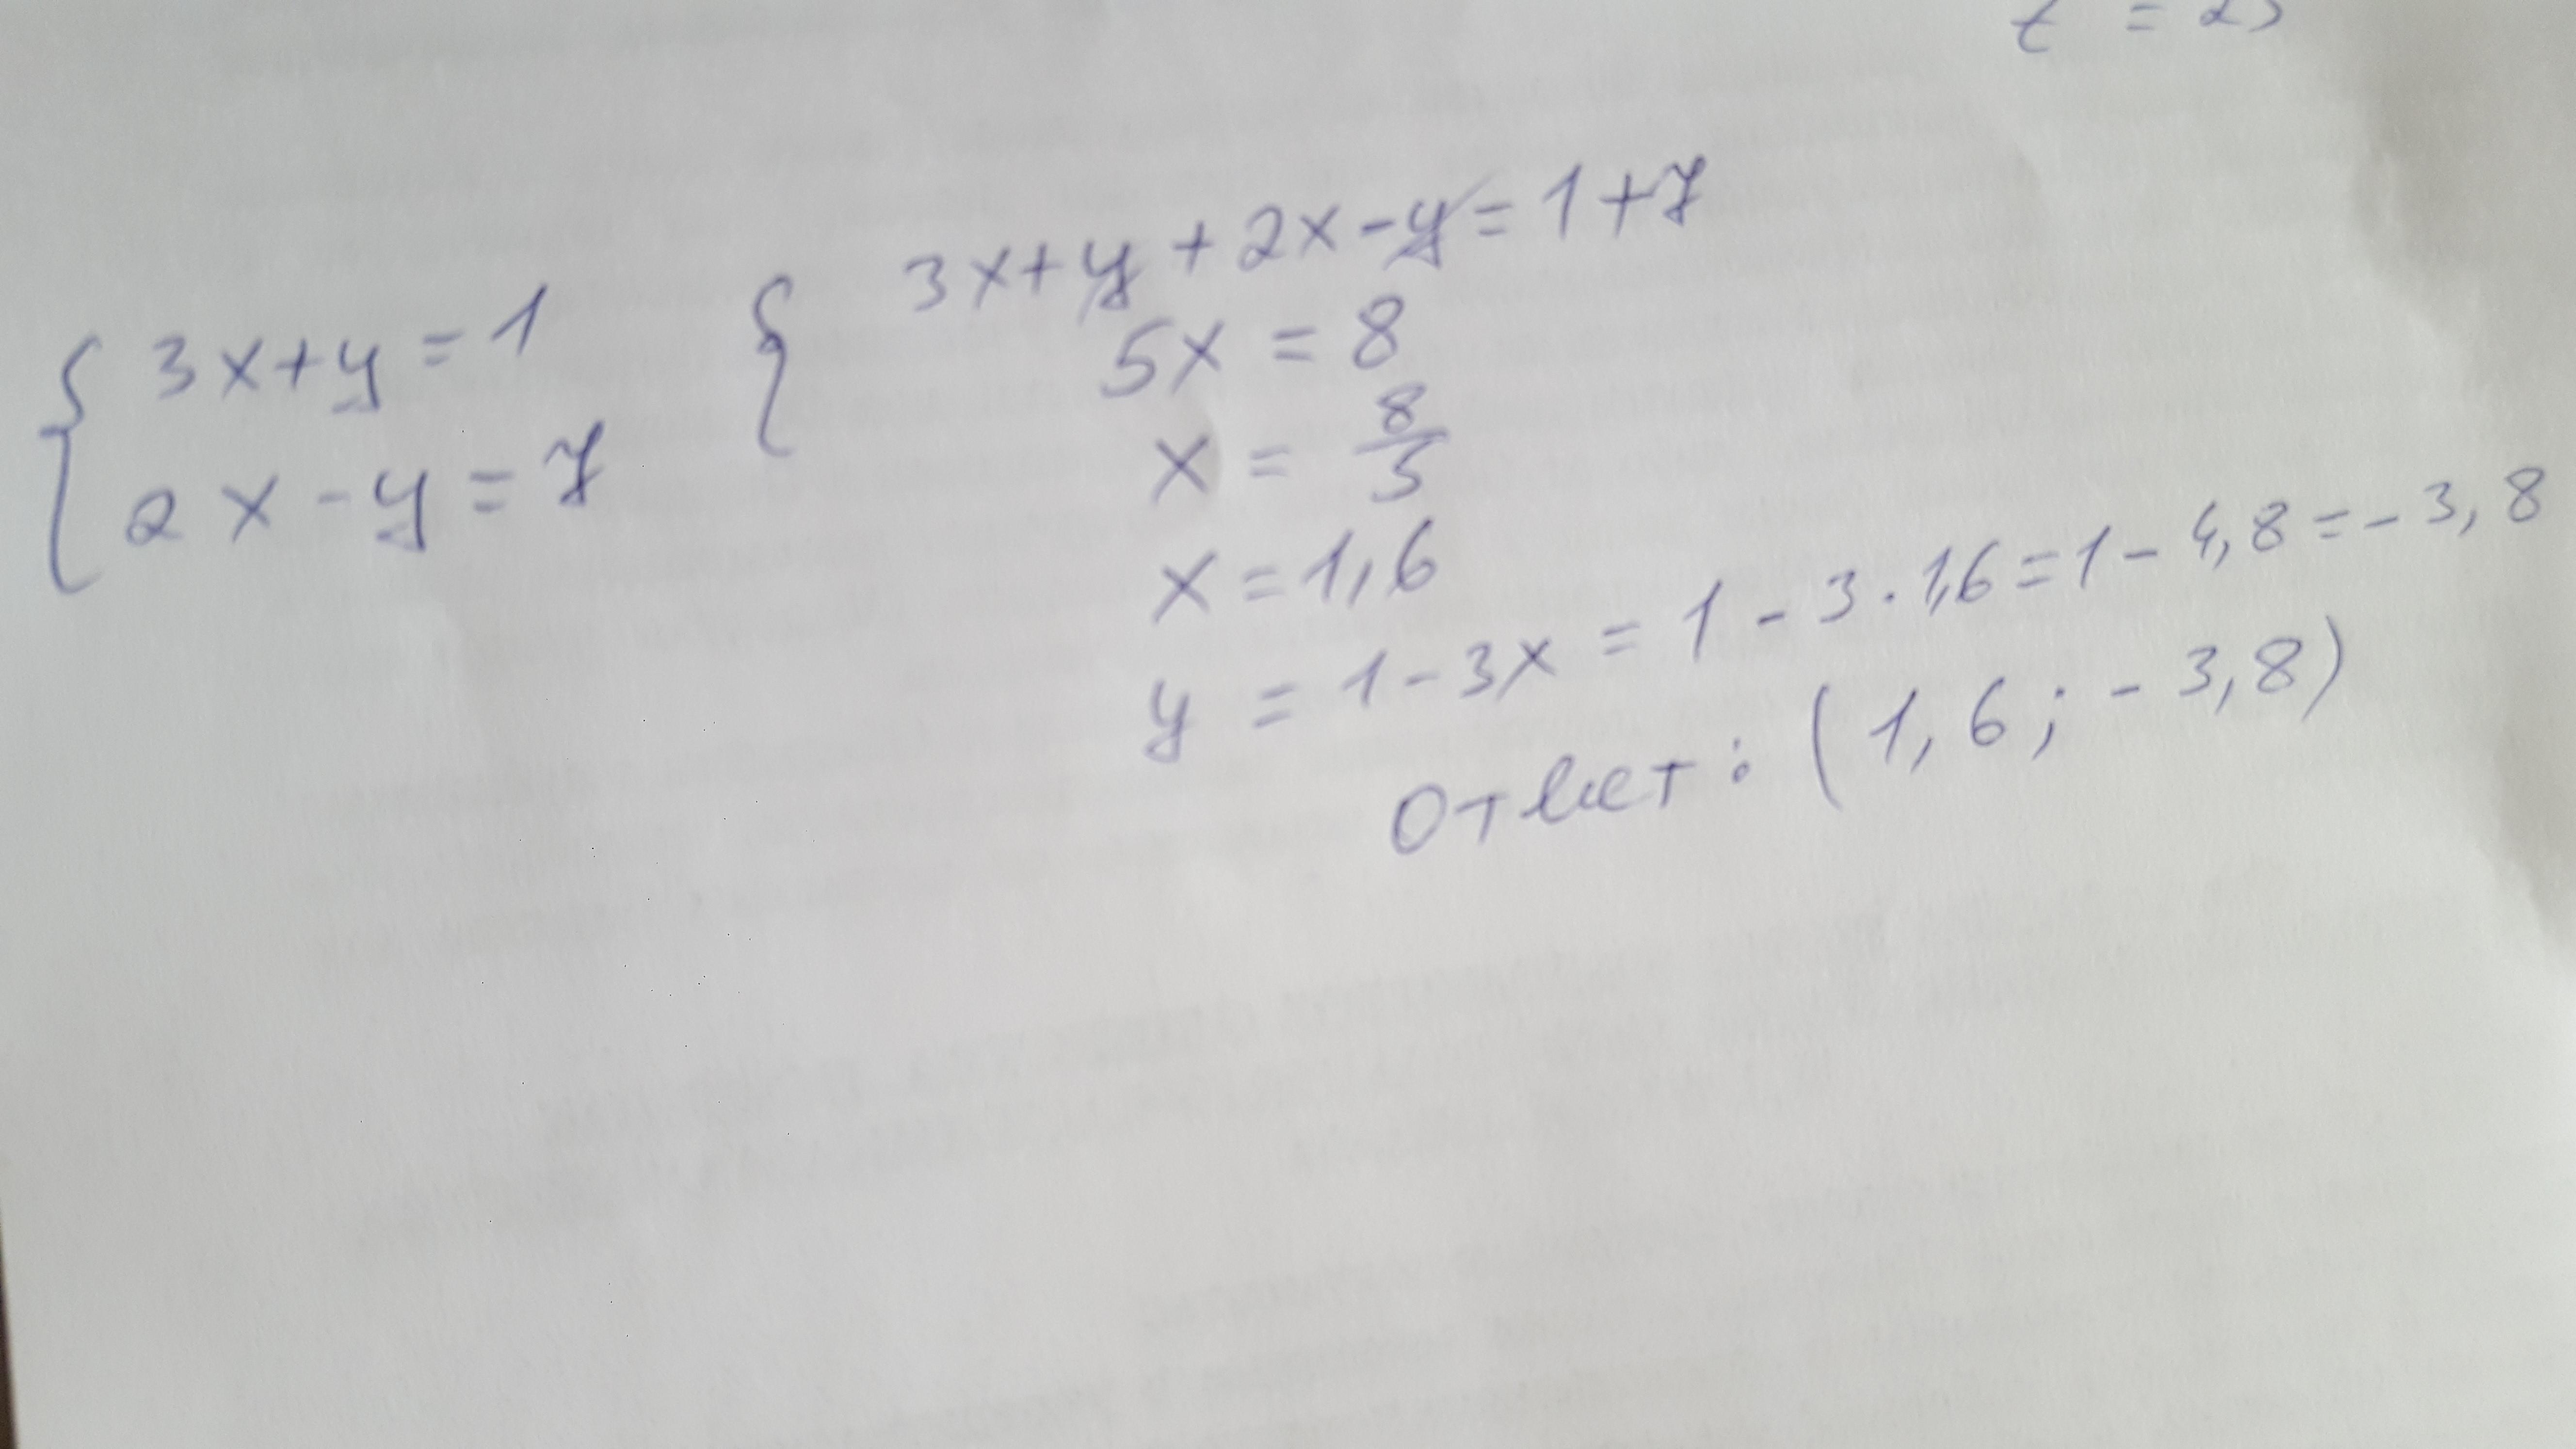 3x+y=1
2x-y=7
3x+y+2x-y=1+7
5x=8
x=8/5
x=1,6
y=1-3x=1-3·1,6=1-4,8=-3,8
Ответ: (1,6; -3,8)